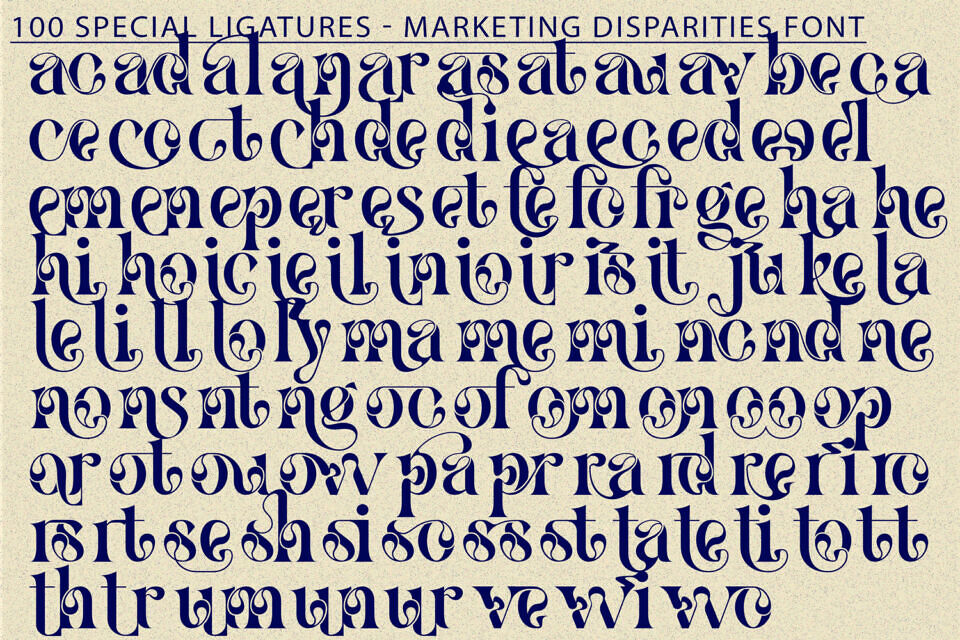 100 SPECIAL LIGATURES - MARKETING DISPARITIES FONT
ac ad al an ar as at au av be ca
ce co ct ch de di ea ec ed eo el
em en ep er es et fe fo fr ge ha he
hi ho ic ie il in io ir is it ju ke la
le li ll lo ly ma me mi nc nd ne
no ns nt ng oc of om on oo op
or ot ou ow pa pr ra rd re ri ro
rs rt se sh si so ss st ta te ti to tt
th tr um un ur ve wi wo